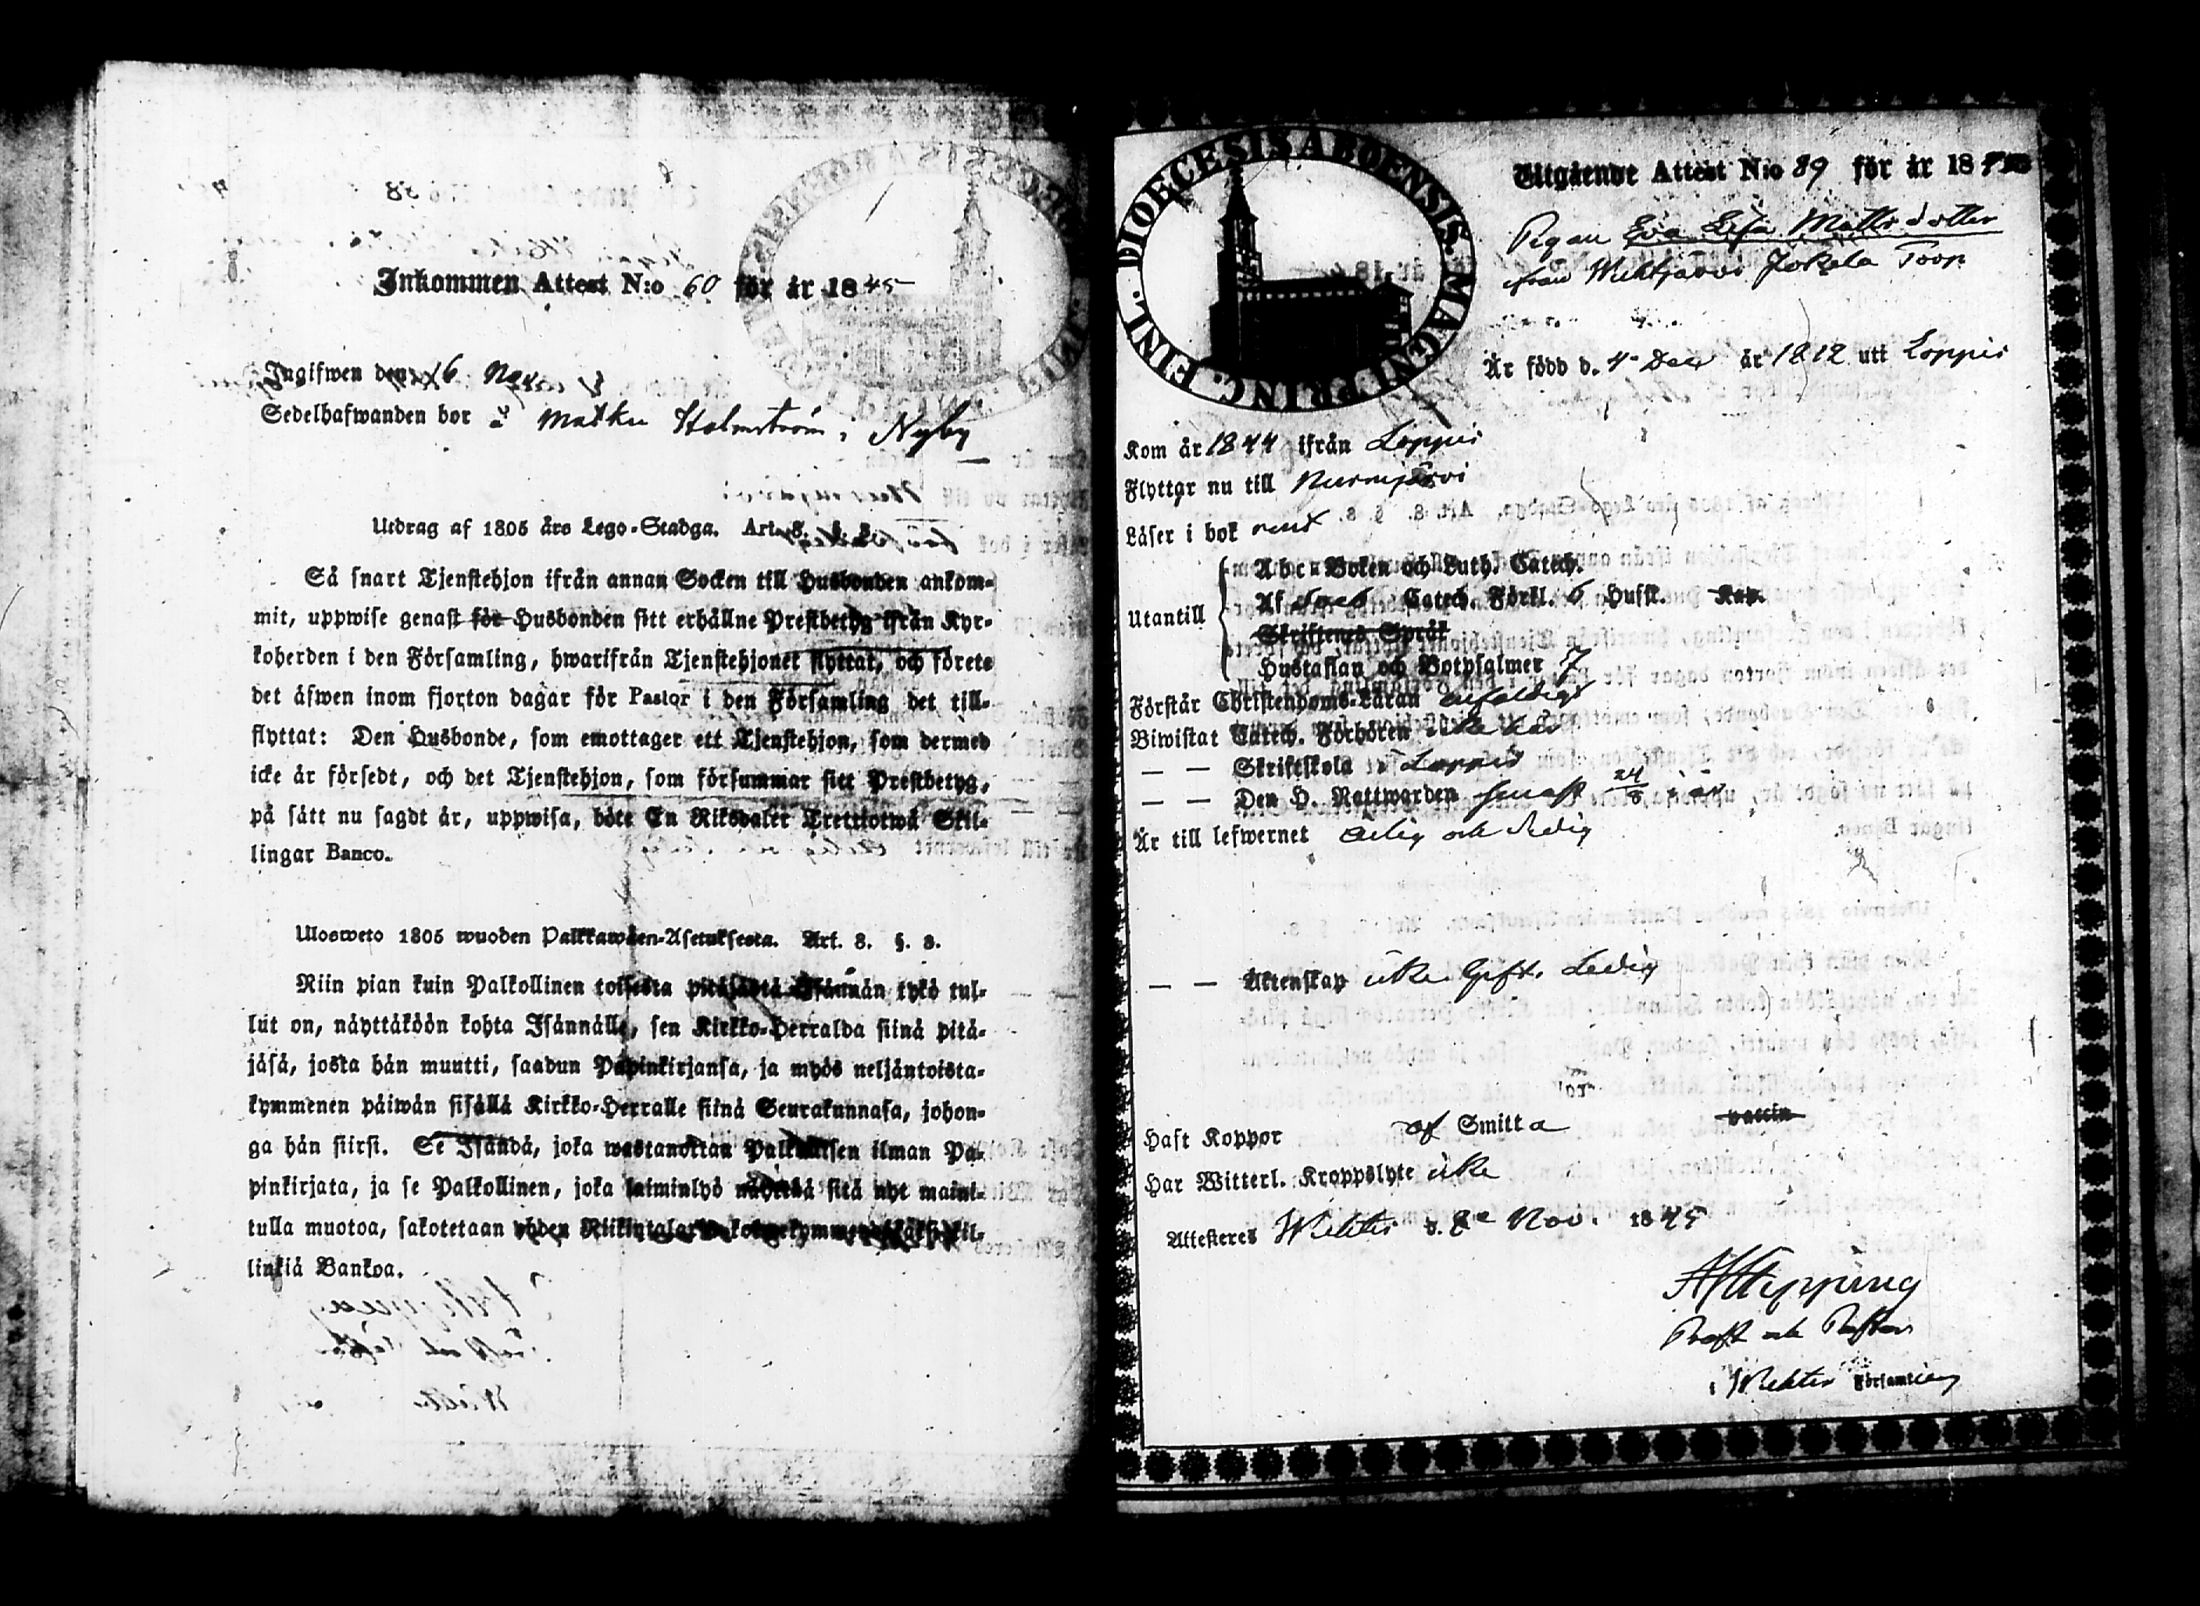 Inkommen Attest N:o 60 för år 1845
Ingifwen den 16 Nov
Sedelhafwanden bor å Malku Holmström i Nyby
Utdrag af 1805 års Lego-Stadga. Art. 8. §. 8.
Så snart Tjenstehjon ifrån annan Socken till Husbonden ankom-
mit, uppwise genast för Husbonden sitt erhållne Prestbetyg ifrån Kyr-
koherden i den Församling, hwarifrån Tjenstehjonet flyttat, och förete
det äfwen inom fjorton dagar för Pastor i den Församling det till-
flyttat: Den Husbonde, som emottager ett Tjenstehjon, som dermed
icke är försedt, och det Tjenstehjon, som försummar sitt Prestbetyg,
på sätt nu sagdt är, uppwisa, böte En Riksdaler Trettiotwå Skil-
lingar Banco.
Ulosweto 1805 wuoden Palkkawäen-Asetuksesta. Art. 8. §. 8.
Niin pian kuin Palkollinen toisesta pitäjästä Isännän tykö tul-
lut on, näyttäköön kohta Isännälle, sen Kirkko-Herralda siinä pitä-
jäsä, josta hän muutti, saadun Papinkirjansa, ja myös neljäntoista-
kymmenen päiwän sisällä Kirkko-Herralle siinä Seurakunnasa, johon-
ga hän siirsi. Se Isändä, joka wastanottaa Palkollisen ilman Pa-
pinkirjata, ja se Palkollinen, joka laiminlyö näyttää sitä nyt maini-
tulla muotoa, sakotetaan yhden Riikintalarin kolmekymmentäkaksi kil-
linkiä Bankoa.
DIOECESIS ABOENSIS. MAGNI PRINC. FINL.
Utgående Attest N:o 89 för år 1845
Pigan Eva Lisa Mattsdotter
från Wichtjärvi Jokela Torp
Är född d. 4 Dec år 1812 uti Loppis
Kom år 1844 ifrån Loppis
Flyttar nu till Nurmijärvi
Läser i bok rent
Utantill
Abc-Boken och Luth. Catech.
Af Catech. Förkl. 6 Husst. Kap.
Skriftenes Språk
Hustaflan och Botpsalmer 7
Förstår Christendoms-Läran enfaldigt
Biwistat Catech. Förhören icke här
— — Skriftskola i Loppis
— — Den H. Nattwarden senast 24/8 i år
Är till lefwernet ärlig och redig
— — Äktenskap icke Gift. Ledig
Haft Koppor af Smitta vaccin
Har Witterl. Kroppslyte icke
Attesteres Wichtis d. 8 Nov. 1845
A Hipping
Prost och Pastor
i Wichtis Församling